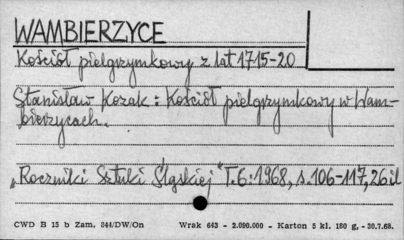 WAMBIERZYCE
Kościół pielgrzymkowy z lat 1715-20
Stanisław Kozak: Kościół pielgrzymkowy w Wam-
bierzycach.
„Roczniki Sztuki Śląskiej" T.6:1968, s.106-117, 26 il
CWD B 15 b Zam. 844/DW/On Wrak 643 - 2.090.000 - Karton 5 kl. 180 g, - 30.7.68.